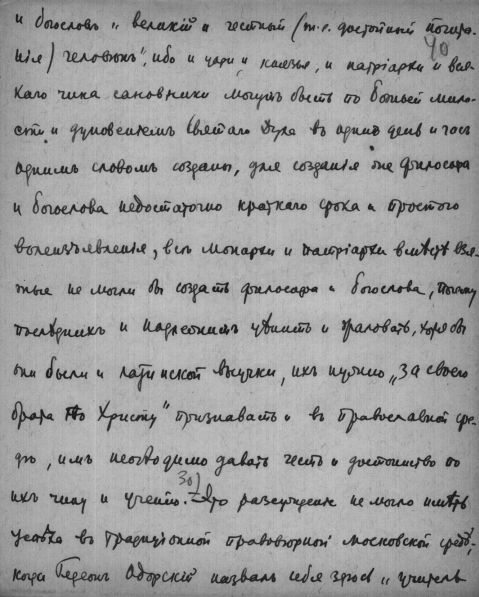 и богословъ „великій и честный (т.е. достойный почита-
40
нія) человѣкъ", ибо и цари и князья, и патріархи и вся-
каго чина сановники могутъ быть по божьей мило-
сти и дуновеніемъ Святаго Духа въ одинъ день и часъ
однимъ словомъ созданы, для созданія же философа
и богослова недостаточно краткаго срока и простого
волеизъявленія, всѣ монархи и патріархи вмѣстѣ взя-
тые не могли бы создать философа и богослова, почему
послѣднихъ и надлежитъ цѣнить и жаловать, хотя бы
они были и латинской выучки, ихъ нужно „за своего
брата по Христу" признавать и въ православной сре-
дѣ, имъ необходимо давать честь и достоинство по
ихъ чину и ученію. 30) Это разсужденіе не могло имѣть
успѣха въ традиціонной правовѣрной московской средѣ,
когда Гедеонъ Одорскій назвалъ себя здѣсь „учитель